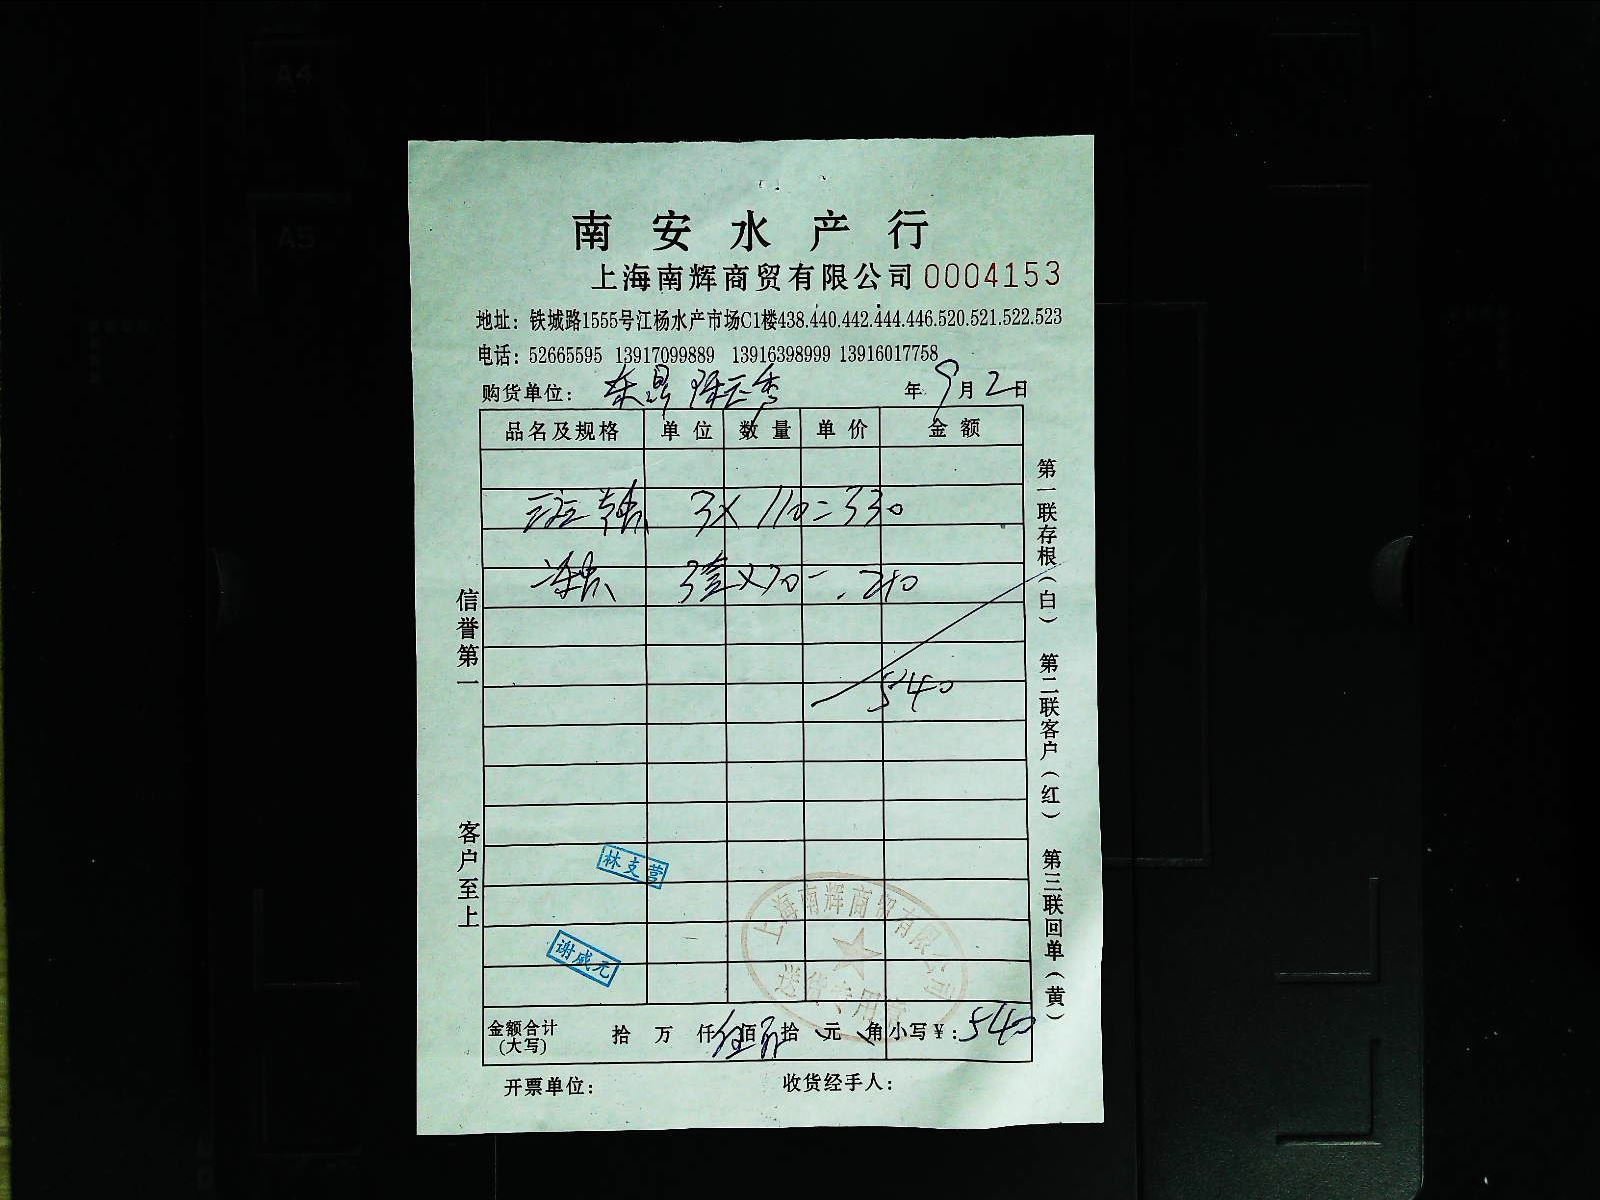 南安水产行
上海南辉商贸有限公司 0004153
地址：铁城路1555号江杨水产市场C1楼438.440.442.444.446.520.521.522.523
电话：52665595 13917099889 13916398999 13916017758
购货单位： 年9月2日
品名及规格 单位 数量 单价 金额
3×110=330
3 ×70- 210
540
林支营
谢咸元
上海南辉商贸有限公司
送货专用章
金额合计(大写) 拾 万 仟伍佰 拾 元 角 小写￥：540
开票单位： 收货经手人：
信誉第一 客户至上
第一联存根（白） 第二联客户（红） 第三联回单（黄）
A4
A5